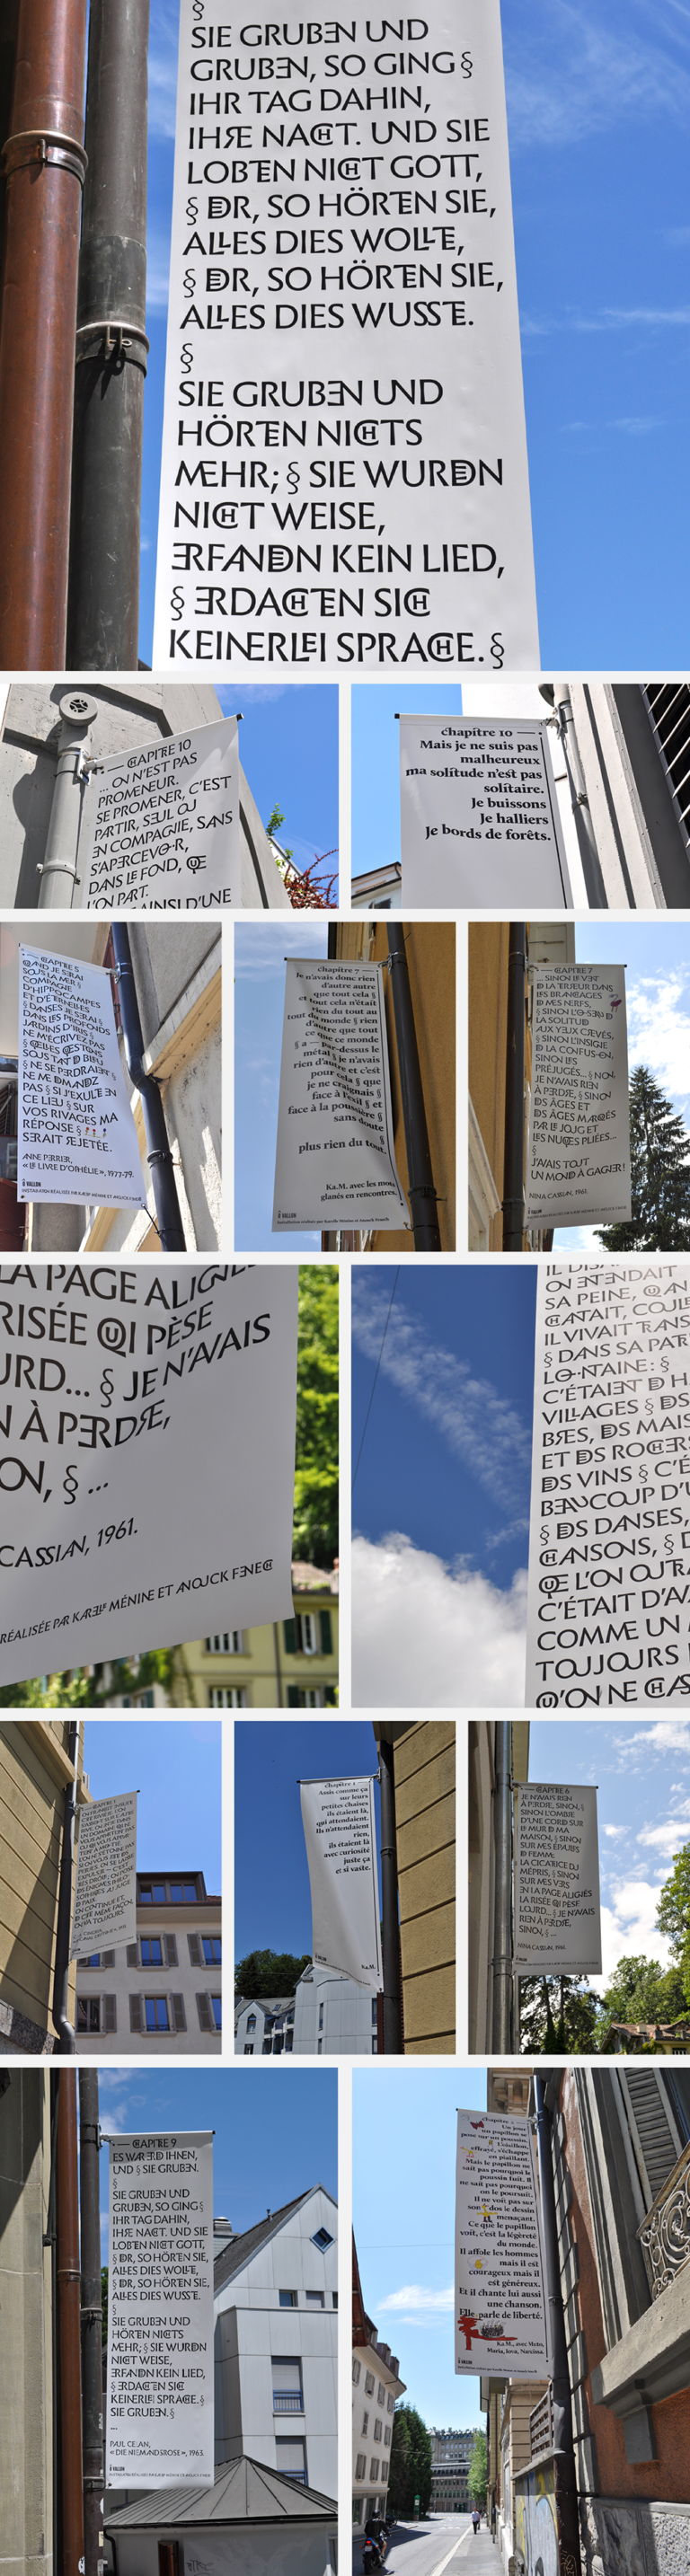 §
SIE GRUBEN UND
GRUBEN, SO GING §
IHR TAG DAHIN,
IHRE NACHT. UND SIE
LOBTEN NICHT GOTT,
§ DER, SO HÖRTEN SIE,
ALLES DIES WOLLTE,
§ DER, SO HÖRTEN SIE,
ALLES DIES WUSSTE.
§
SIE GRUBEN UND
HÖRTEN NICHTS
MEHR; § SIE WURDEN
NICHT WEISE,
ERFANDEN KEIN LIED,
§ ERDACHTEN SICH
KEINERLEI SPRACHE. §
— CHAPITRE 10
... ON N'EST PAS
PROMENEUR.
SE PROMENER, C'EST
PARTIR, SEUL OU
EN COMPAGNIE, SANS
S'APERCEVOIR,
DANS LE FOND, QUE
L'ON PART.
AINSI D'UNE
chapitre 10 —
Mais je ne suis pas
malheureux
ma solitude n'est pas
solitaire.
Je buissons
Je halliers
Je bords de forêts.
— CHAPITRE 5
QUAND JE SERAI
SOUS LA MER §
COMPAGNE
D'HIPPOCAMPES
ET D'ÉTERNELLES
§ DANSES JE SERAI
DANS LES PROFONDS
JARDINS D'IRIS §
NE M'ÉCRIVEZ PAS
§ QUELLES QUESTIONS
SOUS TANT DE BLEU
§ NE SE PERDRAIENT §
NE ME DEMANDEZ
PAS § SI J'EXULTE EN
CE LIEU § SUR
VOS RIVAGES MA
RÉPONSE §
SERAIT REJETÉE.
ANNE PERRIER,
« LE LIVRE D'OPHÉLIE », 1977-79.
VALLON
INSTALLATION RÉALISÉE PAR KARELLE MÉNINE ET ANOUCK FENECH
chapitre 7 —
Je n'avais donc rien
d'autre autre
que tout cela §
et tout cela n'était
rien du tout au
tout du monde § rien
d'autre que tout
ce que ce monde
§ a — par-dessus le
métal § je n'avais
rien d'autre et c'est
pour cela § que
je ne craignais §
face à l'exil § et
face à la poussière §
sans doute
§
plus rien du tout.
Ka.M. avec les mots
glanés en rencontres.
VALLON
Installation réalisée par Karelle Ménine et Anouck Fenech
— CHAPITRE 7
... SINON LE VENT
DE LA TERREUR DANS
LES BRANCHAGES
DE MES NERFS,
§ SINON L'OISEAU DE
LA SOLITUDE
AUX YEUX CREVÉS,
§ SINON L'INSIGNE
DE LA CONFUSION,
SINON LES
PRÉJUGÉS... § NON,
JE N'AVAIS RIEN
À PERDRE, § SINON
DES ÂGES ET
DES ÂGES MARQUÉS
PAR LE JOUG ET
LES NUQUES PLIÉES...
§
J'AVAIS TOUT
UN MONDE À GAGNER !
NINA CASSIAN, 1961.
LA PAGE ALIGNÉS
RISÉE QUI PÈSE
LOURD... § JE N'AVAIS
RIEN À PERDRE,
SINON, § ...
CASSIAN, 1961.
RÉALISÉE PAR KARELLE MÉNINE ET ANOUCK FENECH
ON ENTENDAIT
SA PEINE, QUAN
CHANTAIT, COULE
IL VIVAIT TRANS
§ DANS SA PAT
LOINTAINE: §
C'ÉTAIENT DE H
VILLAGES § DES
BRES, DES MAIS
ET DES ROCHERS
DES VINS § C'É
BEAUCOUP D'U
§ DES DANSES,
CHANSONS, § D
QUE L'ON OUTRA
C'ÉTAIT D'AV
COMME UN
TOUJOURS
QU'ON NE CHAS
chapitre 1 —
Assis comme ça
sur leurs
petites chaises
ils étaient là,
qui attendaient.
Ils n'attendaient
rien,
ils étaient là
avec curiosité
juste ça
et si vaste.
Ka.M.
— CHAPITRE 6
JE N'AVAIS RIEN
À PERDRE, SINON, §
SINON L'OMBRE
D'UNE CORDE SUR
LE MUR DE MA
MAISON, § SINON
SUR MES ÉPAULES
DE FEMME
LA CICATRICE DU
MÉPRIS, § SINON
SUR MES VERS
EN LA PAGE ALIGNÉS
LA RISÉE QUI PÈSE
LOURD... § JE N'AVAIS
RIEN À PERDRE,
SINON, § ...
NINA CASSIAN, 1961.
— CHAPITRE 9
ES WAR ERDE IN IHNEN,
UND § SIE GRUBEN.
§
SIE GRUBEN UND
GRUBEN, SO GING §
IHR TAG DAHIN,
IHRE NACHT. UND SIE
LOBTEN NICHT GOTT,
§ DER, SO HÖRTEN SIE,
ALLES DIES WOLLTE,
§ DER, SO HÖRTEN SIE,
ALLES DIES WUSSTE.
§
SIE GRUBEN UND
HÖRTEN NICHTS
MEHR; § SIE WURDEN
NICHT WEISE,
ERFANDEN KEIN LIED,
§ ERDACHTEN SICH
KEINERLEI SPRACHE. §
SIE GRUBEN. §
...
PAUL CELAN,
« DIE NIEMANDSROSE », 1963.
VALLON
INSTALLATION RÉALISÉE PAR KARELLE MÉNINE ET ANOUCK FENECH
Un jour
un papillon se
pose sur un poussin.
L'oisillon,
effrayé, s'échappe
en piaillant.
Mais le papillon ne
sait pas pourquoi le
poussin fuit. Il
ne sait pas pourquoi
on le poursuit.
Il ne voit pas sur
son dos le dessin
menaçant.
Ce que le papillon
voit, c'est la légèreté
du monde.
Il affole les hommes
mais il est
courageux mais il
est généreux.
Et il chante lui aussi
une chanson.
Elle parle de liberté.
Ka M., avec Meto,
Maria, Iova, Narcissa.